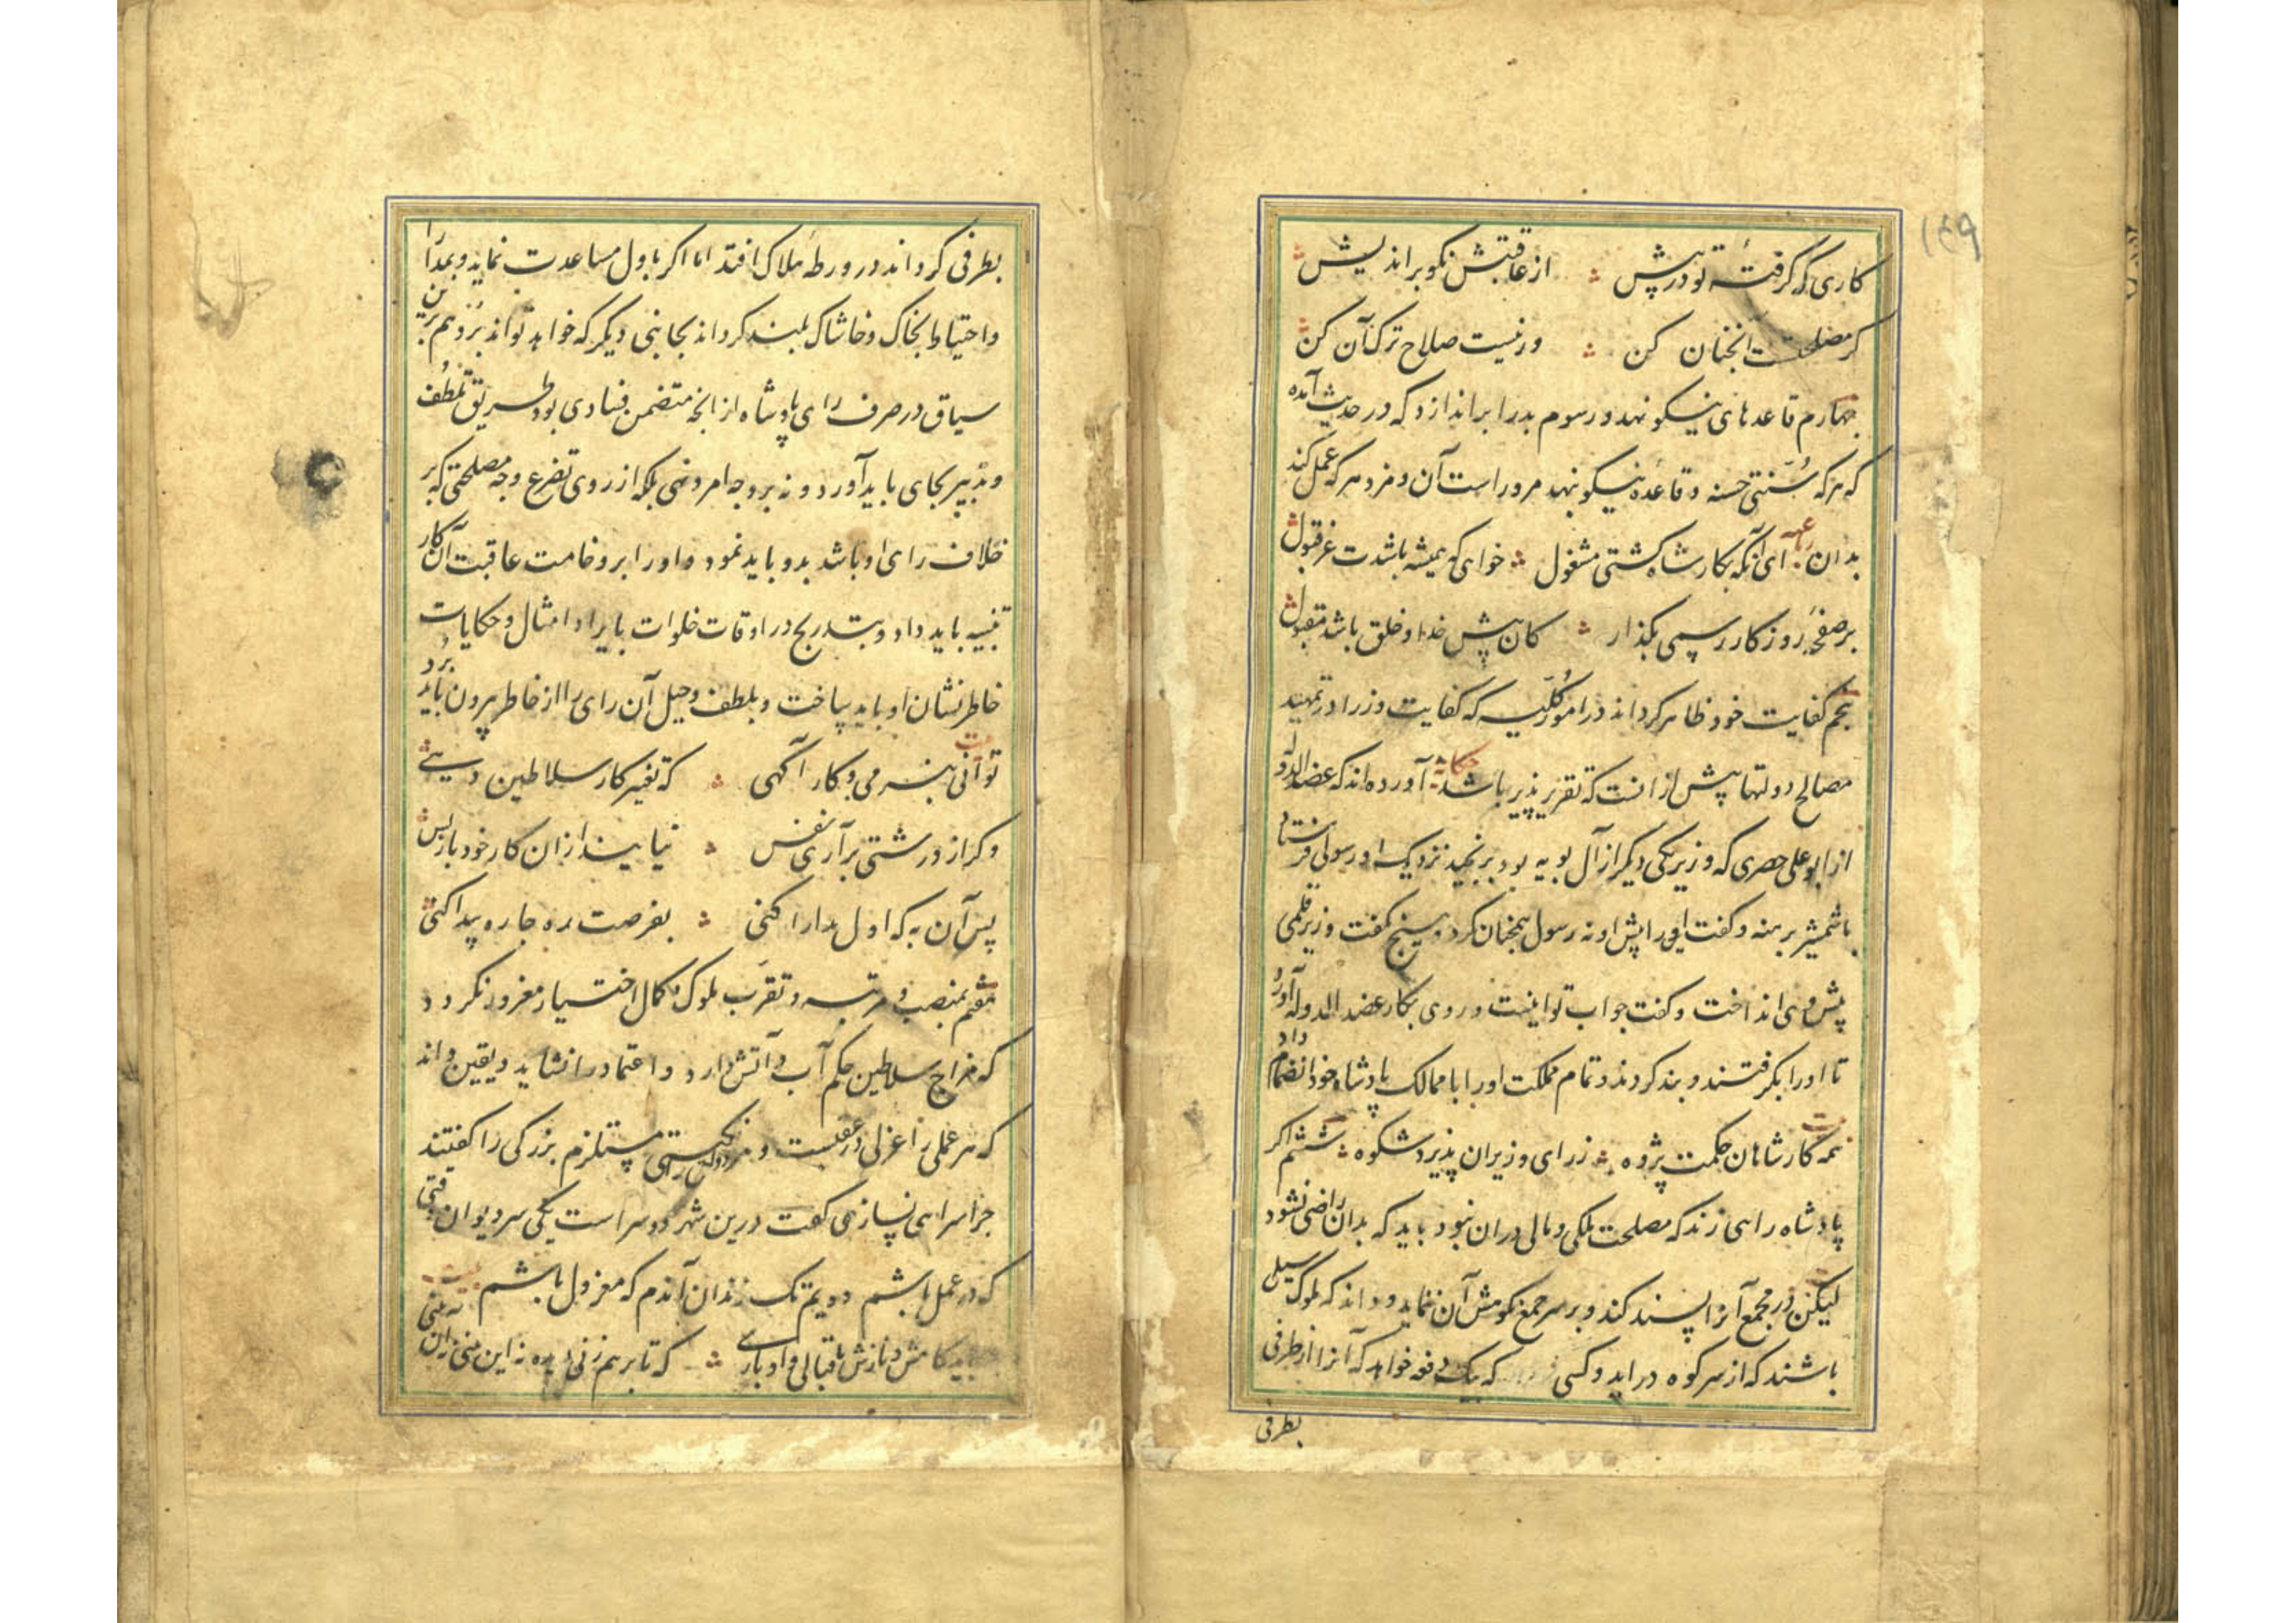 ۱۴۹
کاری که گرفتهٔ تو در پیش از عاقبتش نکو براندیش
گر مصلحتست آنچنان کن ور نیست صلاح ترک آن کن
چهارم قاعدهای نیکو نهد و رسوم بد را براندازد که در حدیث آمده
که هر که سُنّتی حسنه و قاعده نیکو نهد مرو راست آن و مزد هر که عمل کند
بدان رباعیه ای آنکه بکار شاه گشتی مشغول خواهی که همیشه باشدت عز قبول
بر صفحهٔ روزکار رسمی بگذار کان پیش خدا و خلق باشد مقبول
پنجم کفایت خود ظاهر کرداند در امور کُلّیه که کفایت وزرا در تمهید
مصالح دولتها پیش از انست که تقریرپذیر باشد حکایة آورده‌اند که عضد الدوله
از ابو علی حصری که وزیر یکی دیگر از آل بویه بود برنجید نزدیک او رسولی فرستاد
با شمشیر برهنه و گفت این را پیش او نه رسول همچنان کرد و هیچ نگفت وزیر قلمی
پیش وی انداخت و گفت جواب تو اینست و روی بکار عضد الدوله آورد
تا او را بگرفتند و بند کردند و تمام مملکت او را با ممالک پادشاه خود انضمام داد
بیت همه کار شاهان حکمت پژوه ز رای وزیران پذیرد شکوه ششم اگر
پادشاه رایی زند که مصلحت ملکی و مالی در ان نبود باید که بدان راضی نشود
لیکن در مجمع آنرا پسند کند و بر سر جمع نکوهش آن ننماید و داند که ملوک سیلی
باشند که از سر کوه در اید و کسی که یک دفعه خواهد که آنرا از طرفی
بطرفی
بطرفی کرداند در ورطهٔ هلاک افتد اما اگر باول مساعدت نماید و بمدارا
و احتیاط بخاک و خاشاک بلند کرداند بجانبی دیگر که خواهد تواند بُرد و هم برین
سیاق در صرف رای پادشاه از انچه متضمن فسادی بود طریق تلطف
و تدبیر بجای باید آورد و نه بر وجه امر و نهی بلکه از روی تضرع وجه مصلحتی که بر
خلاف رای او باشد بدو باید نمود و او را بر وخامت عاقبت آن کار
تنبیه باید داد و بتدریج در اوقات خلوات بایراد امثال و حکایات
خاطرنشان او باید ساخت و بلطف و حیل آن رای را از خاطر بیرون باید برد
بیت توانی بنرمی و کار آگهی که تغییر کار سلاطین دهی
وگر از درشتی برآری نفس نیایند از ان کار خود باز پس
پس آن به که اول مدارا کنی بفرصت ره چاره پیدا کنی
هفتم بمنصب و مرتبه و تقرّب ملوک و کمال اختیار مغرور نکردد
که مزاج سلاطین حکم آب و آتش دارد و اعتماد را نشاید و یقین داند
که هر عملی را عزلی در عقبست و بزرگی را گفتند
چرا سرایی نسازی گفت درین شهر دو سراست یکی سر دیوان وقتی
که در عمل باشم دویم تک زندان آندم که معزول باشم بیت
کامش و نازش باقبالی و ادبارے که تا بر هم زنی دیده نه این بینی نه آن بینی